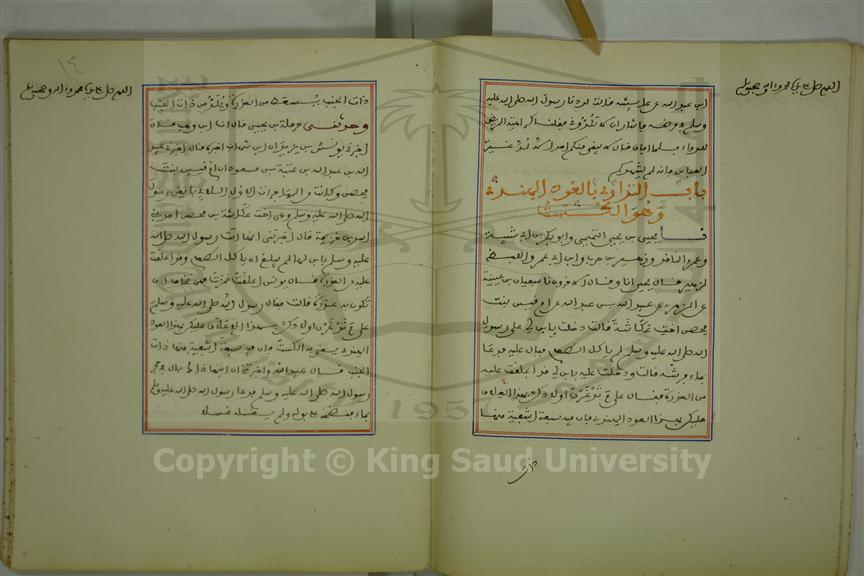 اللهم صل على محمد وءاله وصحبه
ابن عبد الله عن عائشة قالت لددنا رسول الله صلى الله عليه
وسلم في مرضه فأشار أن لا تلدوني فقلنا كراهية المريض
للدواء فلما أفاق قال لا يبقى منكم أحد إلا لد غير
العباس فإنه لم يشهدكم
باب التداوي بالعود الهندي
وهو الكست
يحيى بن يحيى التميمي وأبو بكر بن أبي شيبة
وعمرو الناقد وزهير بن حرب وابن أبي عمر واللفظ
لزهير قال يحيى أنا وقال الآخرون نا سفيان بن عيينة
عن الزهري عن عبيد الله بن عبد الله عن أم قيس بنت
محصن أخت عكاشة قالت دخلت بابن لي على رسول
الله صلى الله عليه وسلم لم يأكل الطعام فبال عليه فدعا
بماء فرشه قالت ودخلت عليه بابن لي قد أعلقت عليه
من العذرة فقال على م تدغرن أولادكن بهذا العلاق
عليكن بهذا العود الهندي فإن فيه سبعة أشفية منها
ذات
١٤
اللهم صل على محمد وءاله وصحبه
ذات الجنب يسعط من العذرة ويلد من ذات الجنب
وحدثني حرملة بن يحيى قال أنا ابن وهب قال
أخبرني يونس بن يزيد أن ابن شهاب أخبره قال أخبرني عبيد
الله بن عبد الله بن عتبة بن مسعود أن أم قيس بنت
محصن وكانت من المهاجرات الأول اللاتي بايعن رسول
الله صلى الله عليه وسلم وهي أخت عكاشة بن محصن أحد بني
أسد بن خزيمة قال أخبرتني أنها أتت رسول الله صلى الله
عليه وسلم بابن لها لم يبلغ أن يأكل الطعام وقد أعلقت
عليه من العذرة قال يونس أعلقت غمزت فهي تخاف أن
تكون به عذرة قالت فقال رسول الله صلى الله عليه وسلم
على م تدغرن أولادكن بهذا الإعلاق عليكن بهذا العود
الهندي يعني به الكست فإن فيه سبعة أشفية منها ذات
الجنب قال عبيد الله وأخبرتني أن ابنها ذاك بال في حجر
رسول الله صلى الله عليه وسلم فدعا رسول الله صلى الله عليه وسلم
بماء فنضحه على بوله ولم يغسله غسلا
1957
Copyright © King Saud University